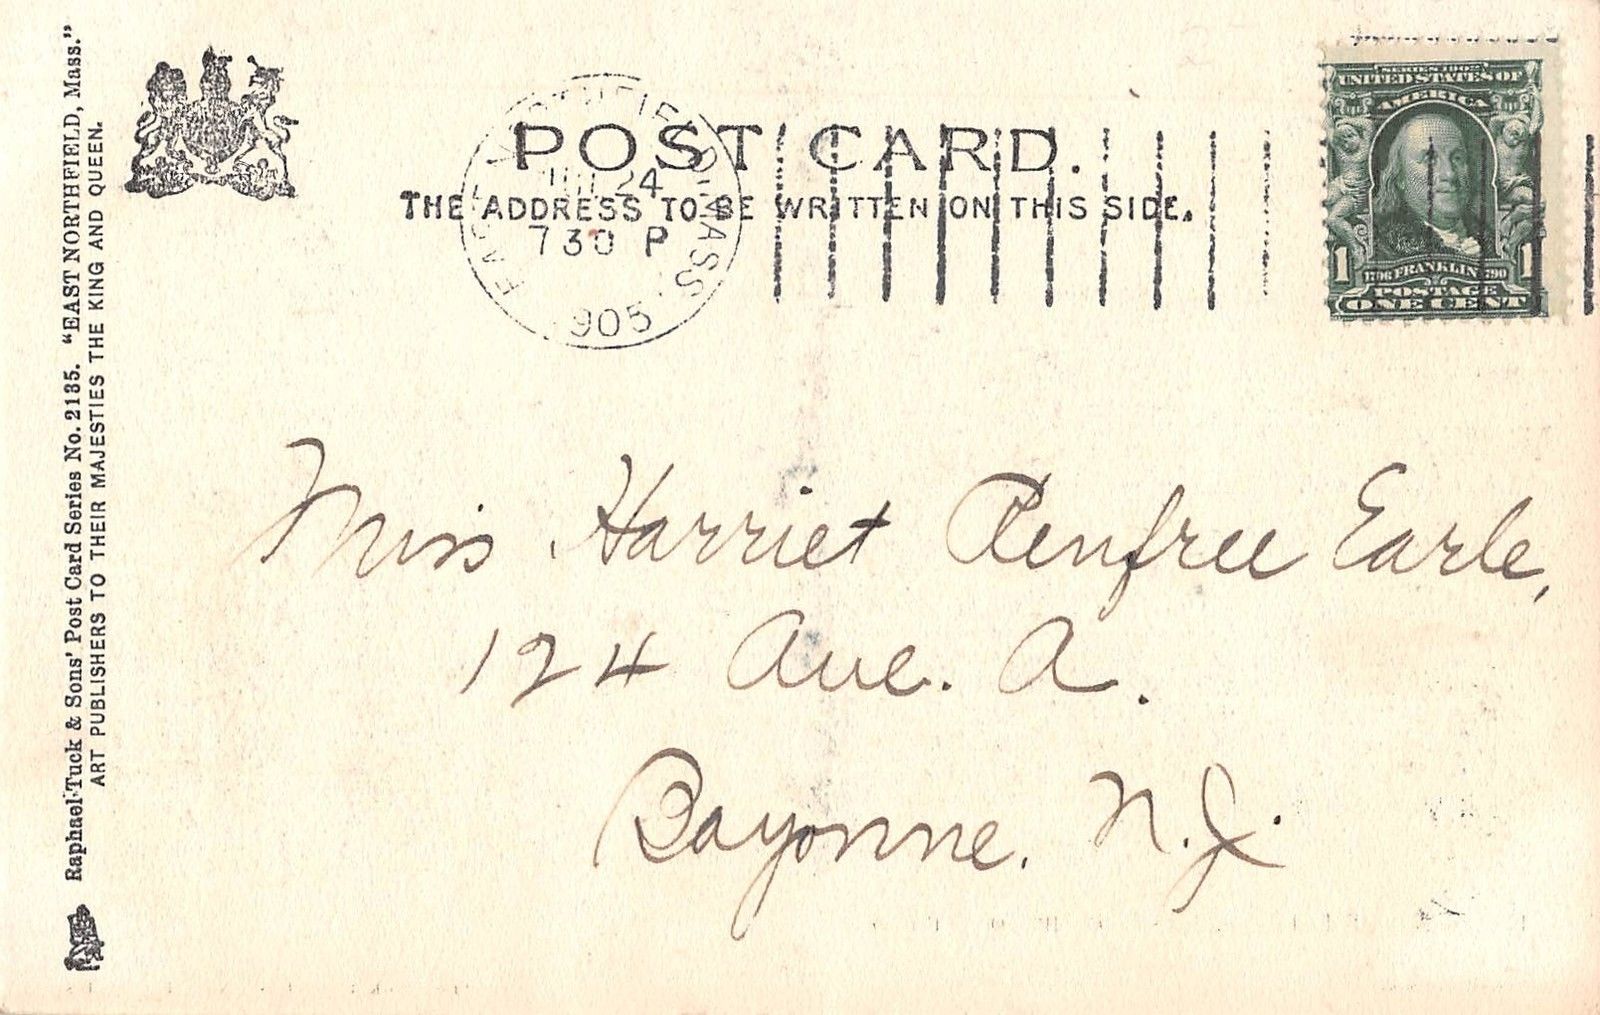 Raphael Tuck & Sons' Post Card Series No. 2135. "EAST NORTHFIELD, Mass."
ART PUBLISHERS TO THEIR MAJESTIES THE KING AND QUEEN.
POST CARD.
THE ADDRESS TO BE WRITTEN ON THIS SIDE.
EAST NORTHFIELD, MASS.
JUL 24
730 P
1905
SERIES 1902
UNITED STATES OF
AMERICA
1706 FRANKLIN 1790
1 1
POSTAGE
ONE CENT
Miss Harriet Renfree Earle,
124 Ave. A.
Bayonne. N.J.